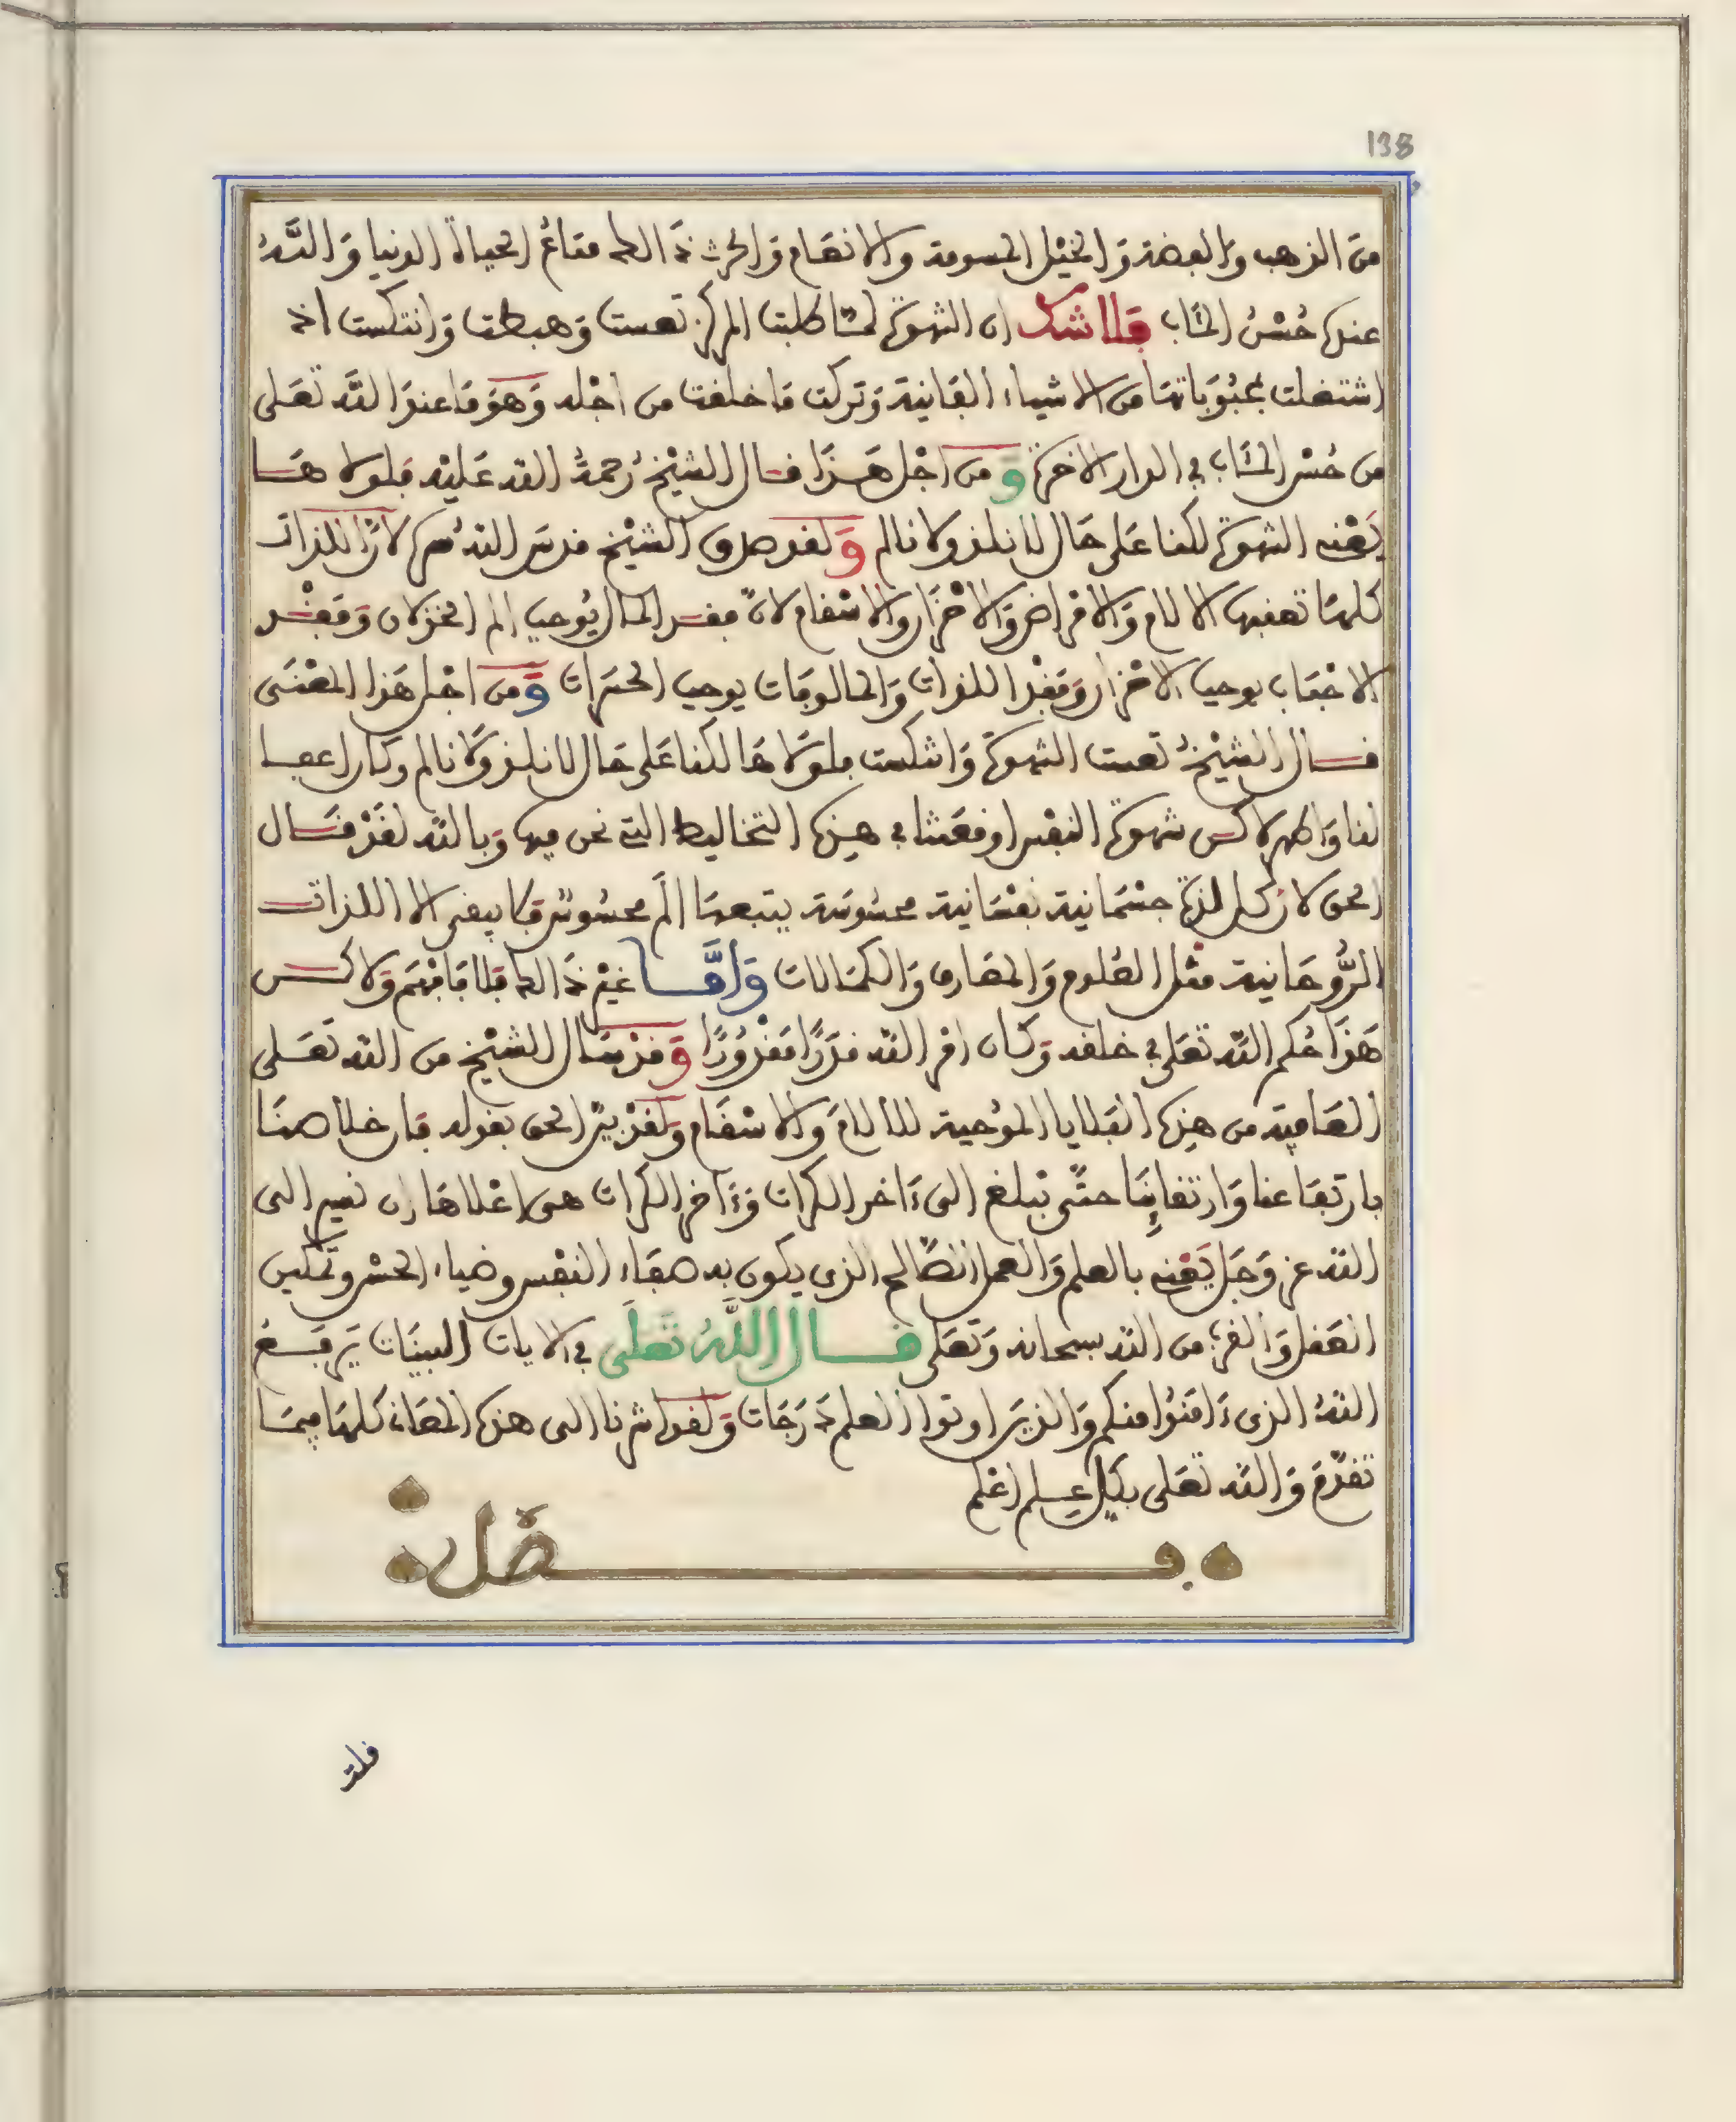 138
من الذهب والفضة والخيل المسومة والانعام والحرث ذالك متاع الحياة الدنيا والله
عنده حسن المئاب فلا شك ان الشهوة لما طلبت المركز تعست وهبطت وانتكست اذ
اشتغلت بمحبوباتها من الاشياء الفانية وتركت ما خلقت من اجله وهو ما عند الله تعلى
من حسن المئاب في الدار الاخرة ومن اجل هذا قال الشيخ رحمة الله عليه فلولا ها
يعني الشهوة لكنا على حال لا نلذ ولا نالم ولقد صدق الشيخ قدس الله سره لان اللذات
كلها تعقبها الالام والامراض والاحزان والاسقام لان فقد المال يوجب الم الخذلان وفقد
الاحباب يوجب الاحزان وفقد اللذات والمالوفات يوجب الحسرات ومن اجل هذا المعنى
قال الشيخ تعست الشهوة وانتكست فلولا ها لكنا على حال لا نلذ ولا نالم وكان اعفا
لنا واطهر لاكن شهوة النفس اوقعتنا في هذه التخاليط التي نحن فيها وبالله لقد قال
الحق لان كل لذة جسمانية نفسانية محسوسة يتبعها الم محسوس فما يبقى الا اللذات
الروحانية مثل العلوم والمعارف والكمالات واما غير ذالك فلا فافهم ولاكن
هذا حكم الله تعلى في خلقه وكان امر الله قدرا مقدورا وقد سال الشيخ من الله تعلى
العافية من هذه البلايا الموجبة للالام والاسقام ولقد بين الحق بقوله فان خلاصنا
بارتفاعنا وارتقاينا حتى نبلغ الى ءاخر الكرات وءاخر الكرات هي اعلاها ان نصير الى
الله عز وجل يعني بالعلم والعمل الصالح الذي يكون به صفاء النفس وضياء الحس وتمكين
العقل والقرب من الله سبحانه وتعلى قال الله تعلى في الايات البينات يرفع
الله الذين ءامنوا منكم والذين اوتوا العلم درجات ولقد اشرنا الى هذه المعاني كلها فيما
تقدم والله تعلى بكل علم اعلم
فصل
قلت